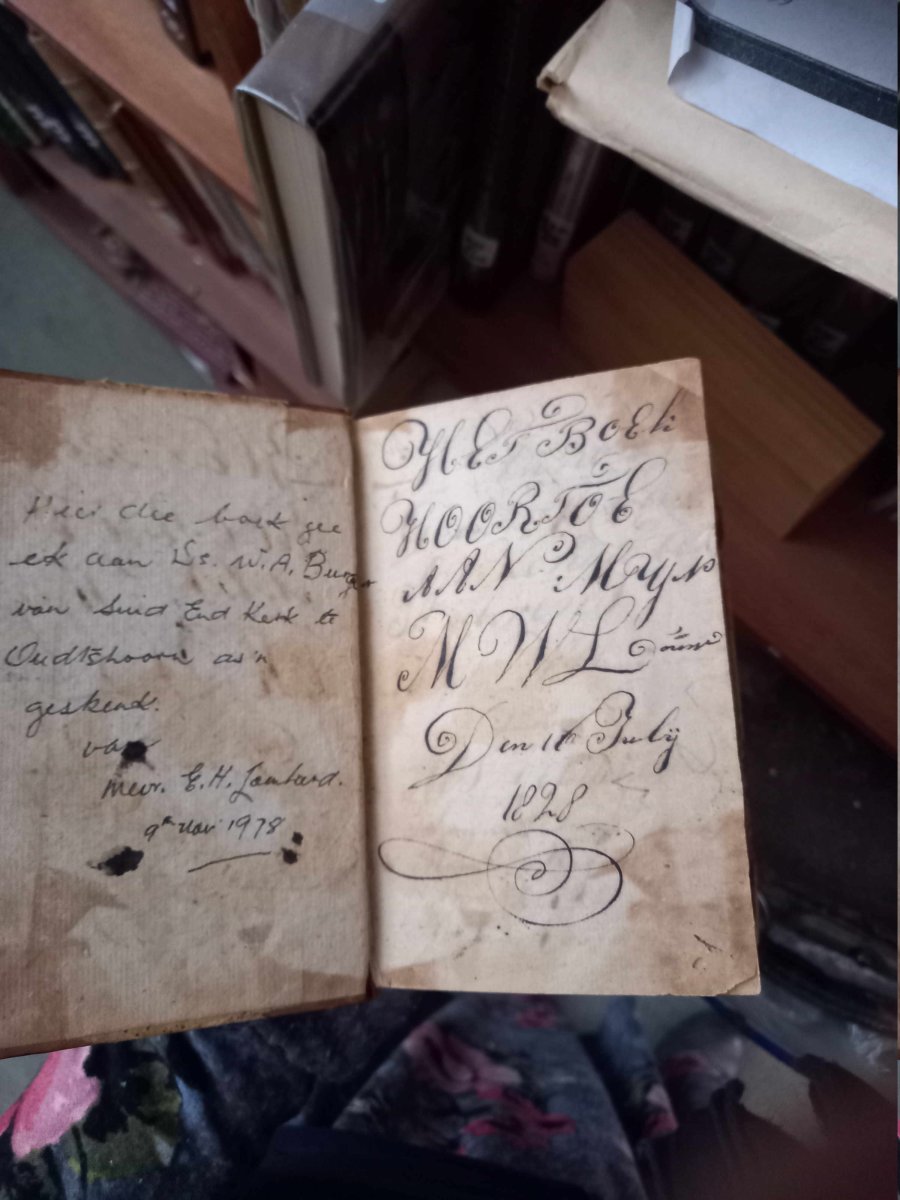 Hier die boek gee
ek aan Ds. W.A. Burger
van Suid End Kerk te
Oudtshoorn as 'n
geskenk.
van
Mevr. E.H. Lombard.
9de Nov 1978
HET BOEk
HOORTOE
AAN MYN
MWL
Den 11th Julij
1828